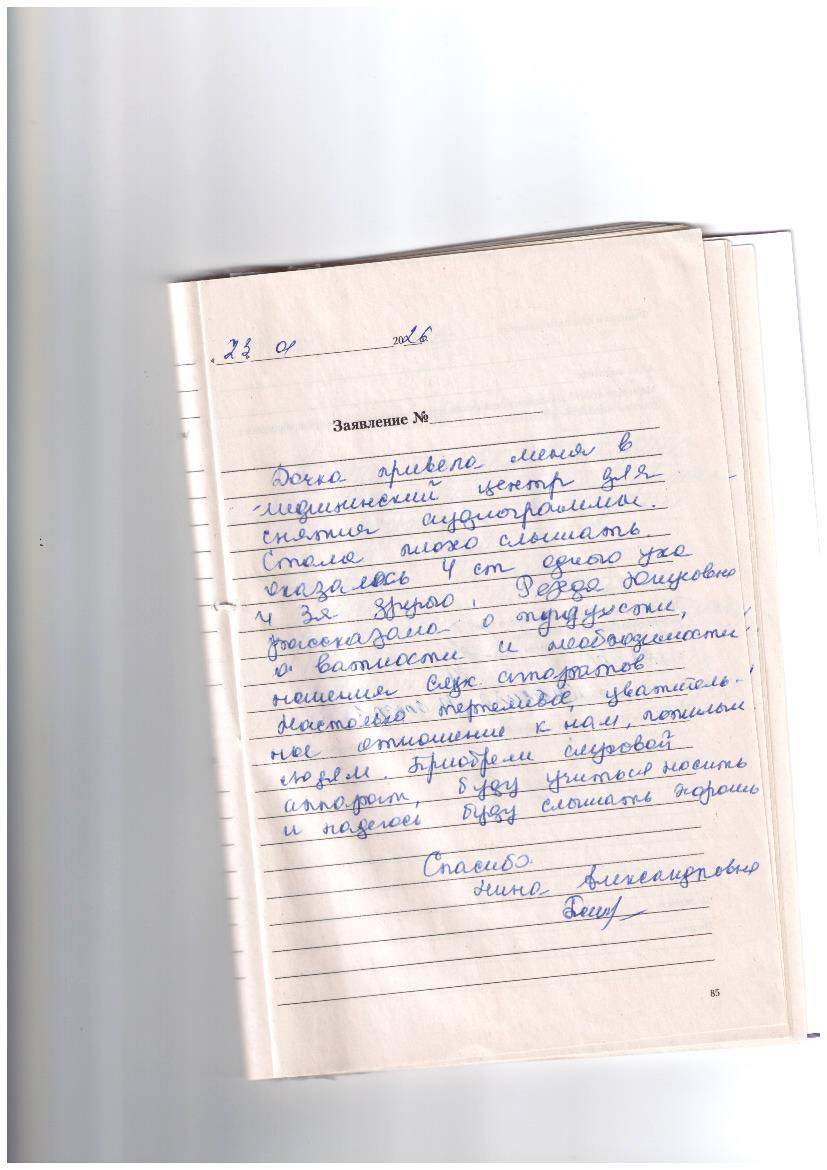 23 01 2026
Заявление №
Дочка привела меня в
медицинский центр для
снятия аудиограммы.
Стала плохо слышать.
Оказалось 4 ст одного уха
и 3я другого.
рассказала о тугоухости,
о важности и необходимости
ношения слух. аппаратов
Настолько терпеливое, уважитель-
ное отношение к нам, пожилым
людям. Приобрели слуховой
аппарат, буду учиться носить
и надеюсь буду слышать хорошо
Спасибо.
Нина Александровна
85